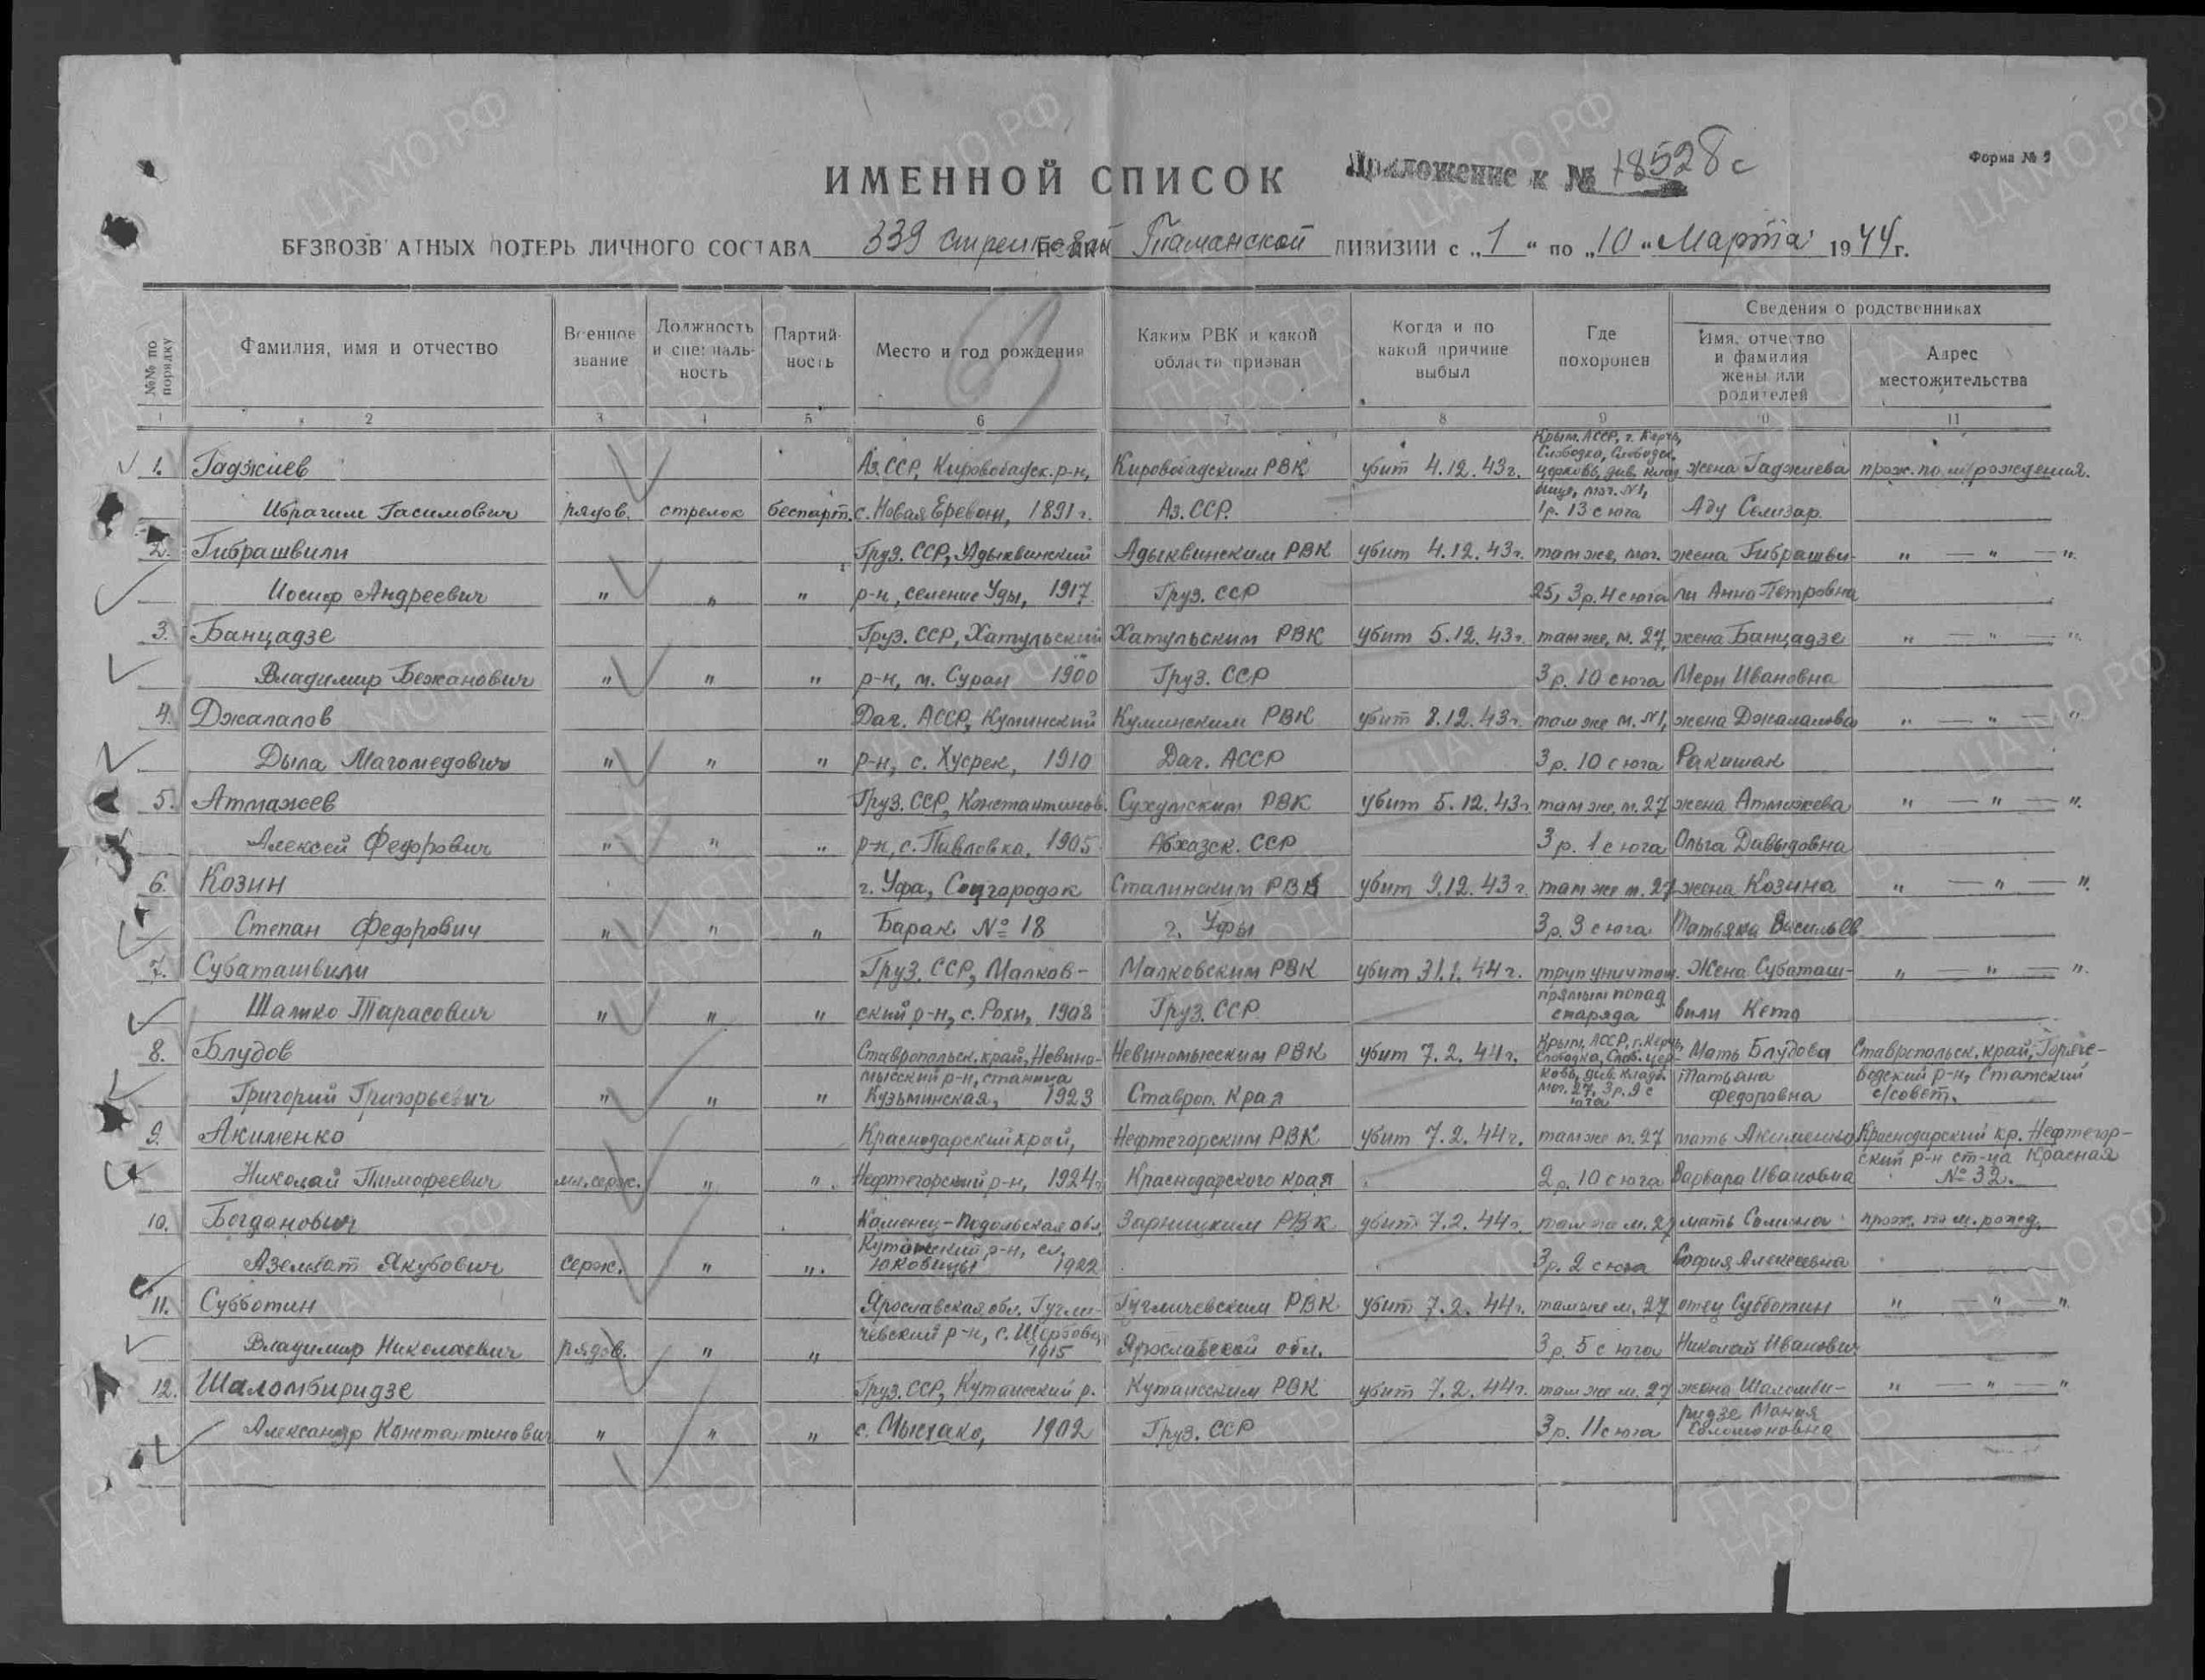 Форма № 2
ИМЕННОЙ СПИСОК
Приложение к № 18528с
БЕЗВОЗВРАТНЫХ ПОТЕРЬ ЛИЧНОГО СОСТАВА 339 стрелковой Таманской ДИВИЗИИ с „1“ по „10“ Марта 1944 г.
№№ по порядку
Фамилия, имя и отчество
Военное звание
Должность и специальность
Партийность
Место и год рождения
Каким РВК и какой области призван
Когда и по какой причине выбыл
Где похоронен
Сведения о родственниках
Имя, отчество и фамилия жены или родителей
Адрес местожительства
1 2 3 4 5 6 7 8 9 10 11
Крым. АССР, г. Керчь,
Слободка, Слободск.
1. Гаджиев Аз. ССР, Кировобадск. р-н, Кировобадским РВК убит 4.12.43г. церковь, див. клад жена Гаджиева прож. по м/рождения.
бище, мог. №1,
Ибрагим Гасимович рядов. стрелок беспарт. с. Новая Еревань, 1891 г. Аз. ССР. 1р. 13 с юга Аду Селизар
2. Гибрашвили Груз. ССР, Адыквинский Адыквинским РВК убит 4.12.43г. там же, мог. жена Гибрашви- " — " — "
Иосиф Андреевич " " " р-н, селение Уды, 1917 Груз. ССР 25, 3р. 4 с юга ли Анна Петровна
3. Банцадзе Груз. ССР, Хатульский Хатульским РВК убит 5.12.43г. там же, м. 27, жена Банцадзе " — " — "
Владимир Бежанович " " " р-н, м. Суран 1900 Груз. ССР 3р. 10 с юга Мери Ивановна
4. Джалалов Даг. АССР, Кулинский Кулинским РВК убит 8.12.43г. там же м. №1, жена Джалалова " — " — "
Дыла Магомедович " " " р-н, с. Хусрек, 1910 Даг. АССР 3р. 10 с юга Ракишак
5. Атмажев Груз. ССР, Константинов. Сухумским РВК убит 5.12.43г там же, м. 27 жена Атмажева " — " — "
Алексей Федорович " " " р-н, с. Павловка, 1905 Абхазск. ССР 3р. 1 с юга Ольга Давыдовна
6. Козин г. Уфа, Соцгородок Сталинским РВК убит 9.12.43г. там же м. 27 жена Козина " — " — "
Степан Федорович " " " Барак № 18 г. Уфы 3р. 3 с юга Татьяна Васильев
7. Субаташвили Груз. ССР, Малков- Малковским РВК убит 31.1.44г. труп уничтож. Жена Субаташ- " — " — "
прямым попад
Шалико Тарасович " " " ский р-н, с. Рохи, 1908 Груз. ССР снаряда вили Кето
Крым, АССР, г. Керчь,
8. Блудов Ставропольск. край, Невино- Невиномысским РВК убит 7.2.44г. Слободка, Слоб. цер- Мать Блудова Ставропольск. край, Горяче-
мысский р-н, станица ковь, див. кладб. Татьяна водский р-н, Статский
Григорий Григорьевич " " " Кузьминская, 1923 Ставроп. Края мог. 27, 3р. 9 с юга Федоровна с/совет.
9. Акименко Краснодарский край, Нефтегорским РВК убит 7.2.44г. там же м. 27 мать Акименко Краснодарский кр. Нефтегор-
ский р-н ст-ца Красная
Николай Тимофеевич мл. серж. " " Нефтегорский р-н, 1924г Краснодарского края 2р. 10 с юга Варвара Ивановна № 32.
10. Богданович Каменец-Подольская обл. Зарницким РВК убит 7.2.44г. там же м. 27 мать Солина прож. по м. рожд.
р-н, с.
Якубович серж. " " Юковицы 1922 3р. 2 с юга София Алексеевна
11. Субботин Ярославская обл. Гугли- Гугличевским РВК убит 7.2.44г. там же м. 27 отец Субботин " — " — "
чевский р-н, с.
Владимир Николаевич рядов. " " 1915 Ярославской обл. 3р. 5 с юга Николай Иванович
12. Шаломбиридзе Груз. ССР, Кутаисский р. Кутаисским РВК убит 7.2.44г. там же м. 27 жена Шаломби- " — " — "
ридзе Мания
Александр Константинович " " " с. Мысхако, 1902 Груз. ССР 3р. 11 с юга Соломоновна
ЦАМО.РФ
ПАМЯТЬ НАРОДА